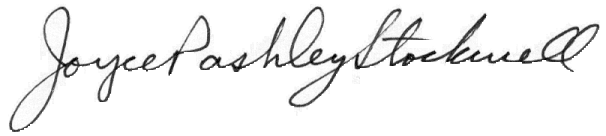 Joyce Pashley Stockwell